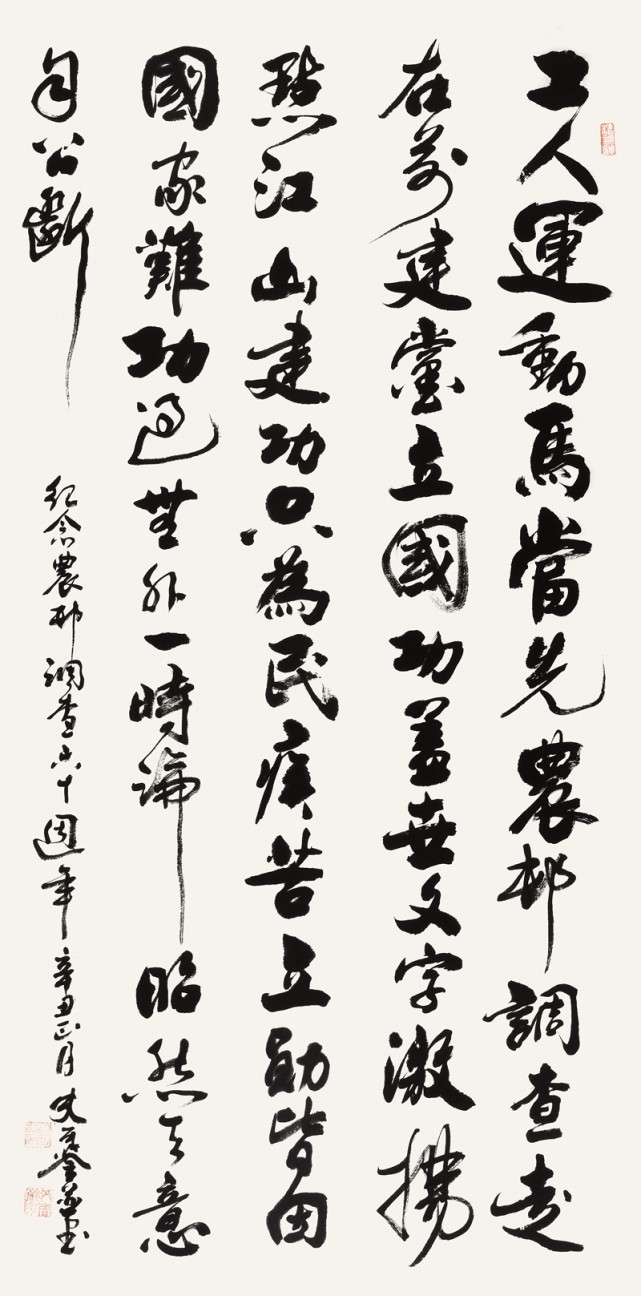 工人運動馬當先農邨調查走
在前建黨立國功蓋世文字激揚
點江山建功只為民疾苦立勛皆因
國家難功過無外一時論昭然天意
自公斷
紀念農邨調查六十週年辛丑正月